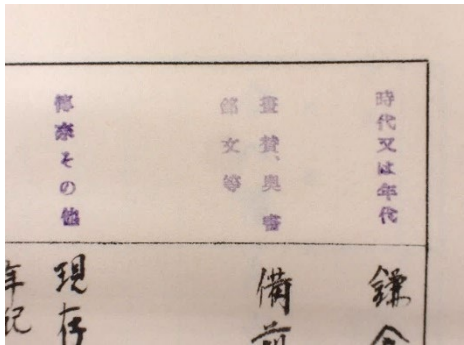 時代又は年代
畫賛、奥書
銘文等
傳来その他
鎌
備前
現存
年記